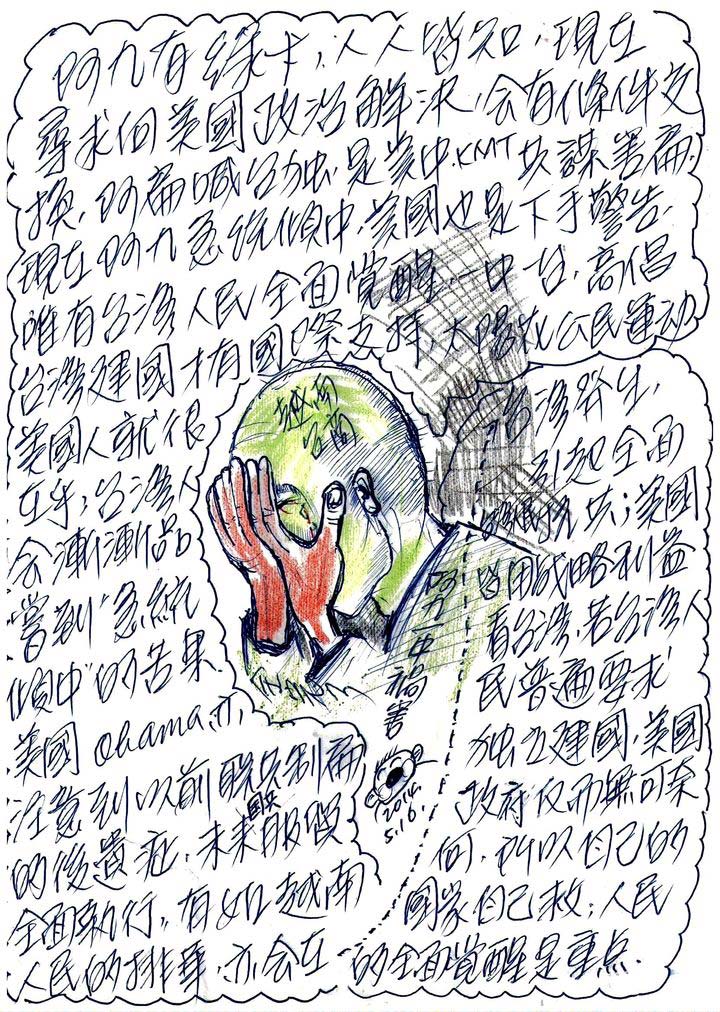 阿九有綠卡，人人皆知，現在
尋求何美國政治解決，会有條件交
換，阿扁喊台独，是党中，KMT共謀害扁，
現在阿九急統傾中，美國也是下手警告，
唯有台湾人民全面覚醒，一中一台，高倡
台灣建國才有國際支持，太陽花公民運动
美國人就很
在乎；台湾人
会漸漸品
嘗到"急統
傾中"的苦果
美國Obama,亦
注意到以前联共制扁
的後遺症，未来
國共
服貿
全面執行，有如越南
人民的排華，亦会在
台湾發生，
引起全面
抗共；美國
皆用战略利益
看台湾，若台湾人
民普遍要求
独立建國，美國
政府反而無可奈
何，所以自己的
國家自己救；人民
的全面覚醒是重点．
越南
台南
阿九一中禍害
2014.
5.16.